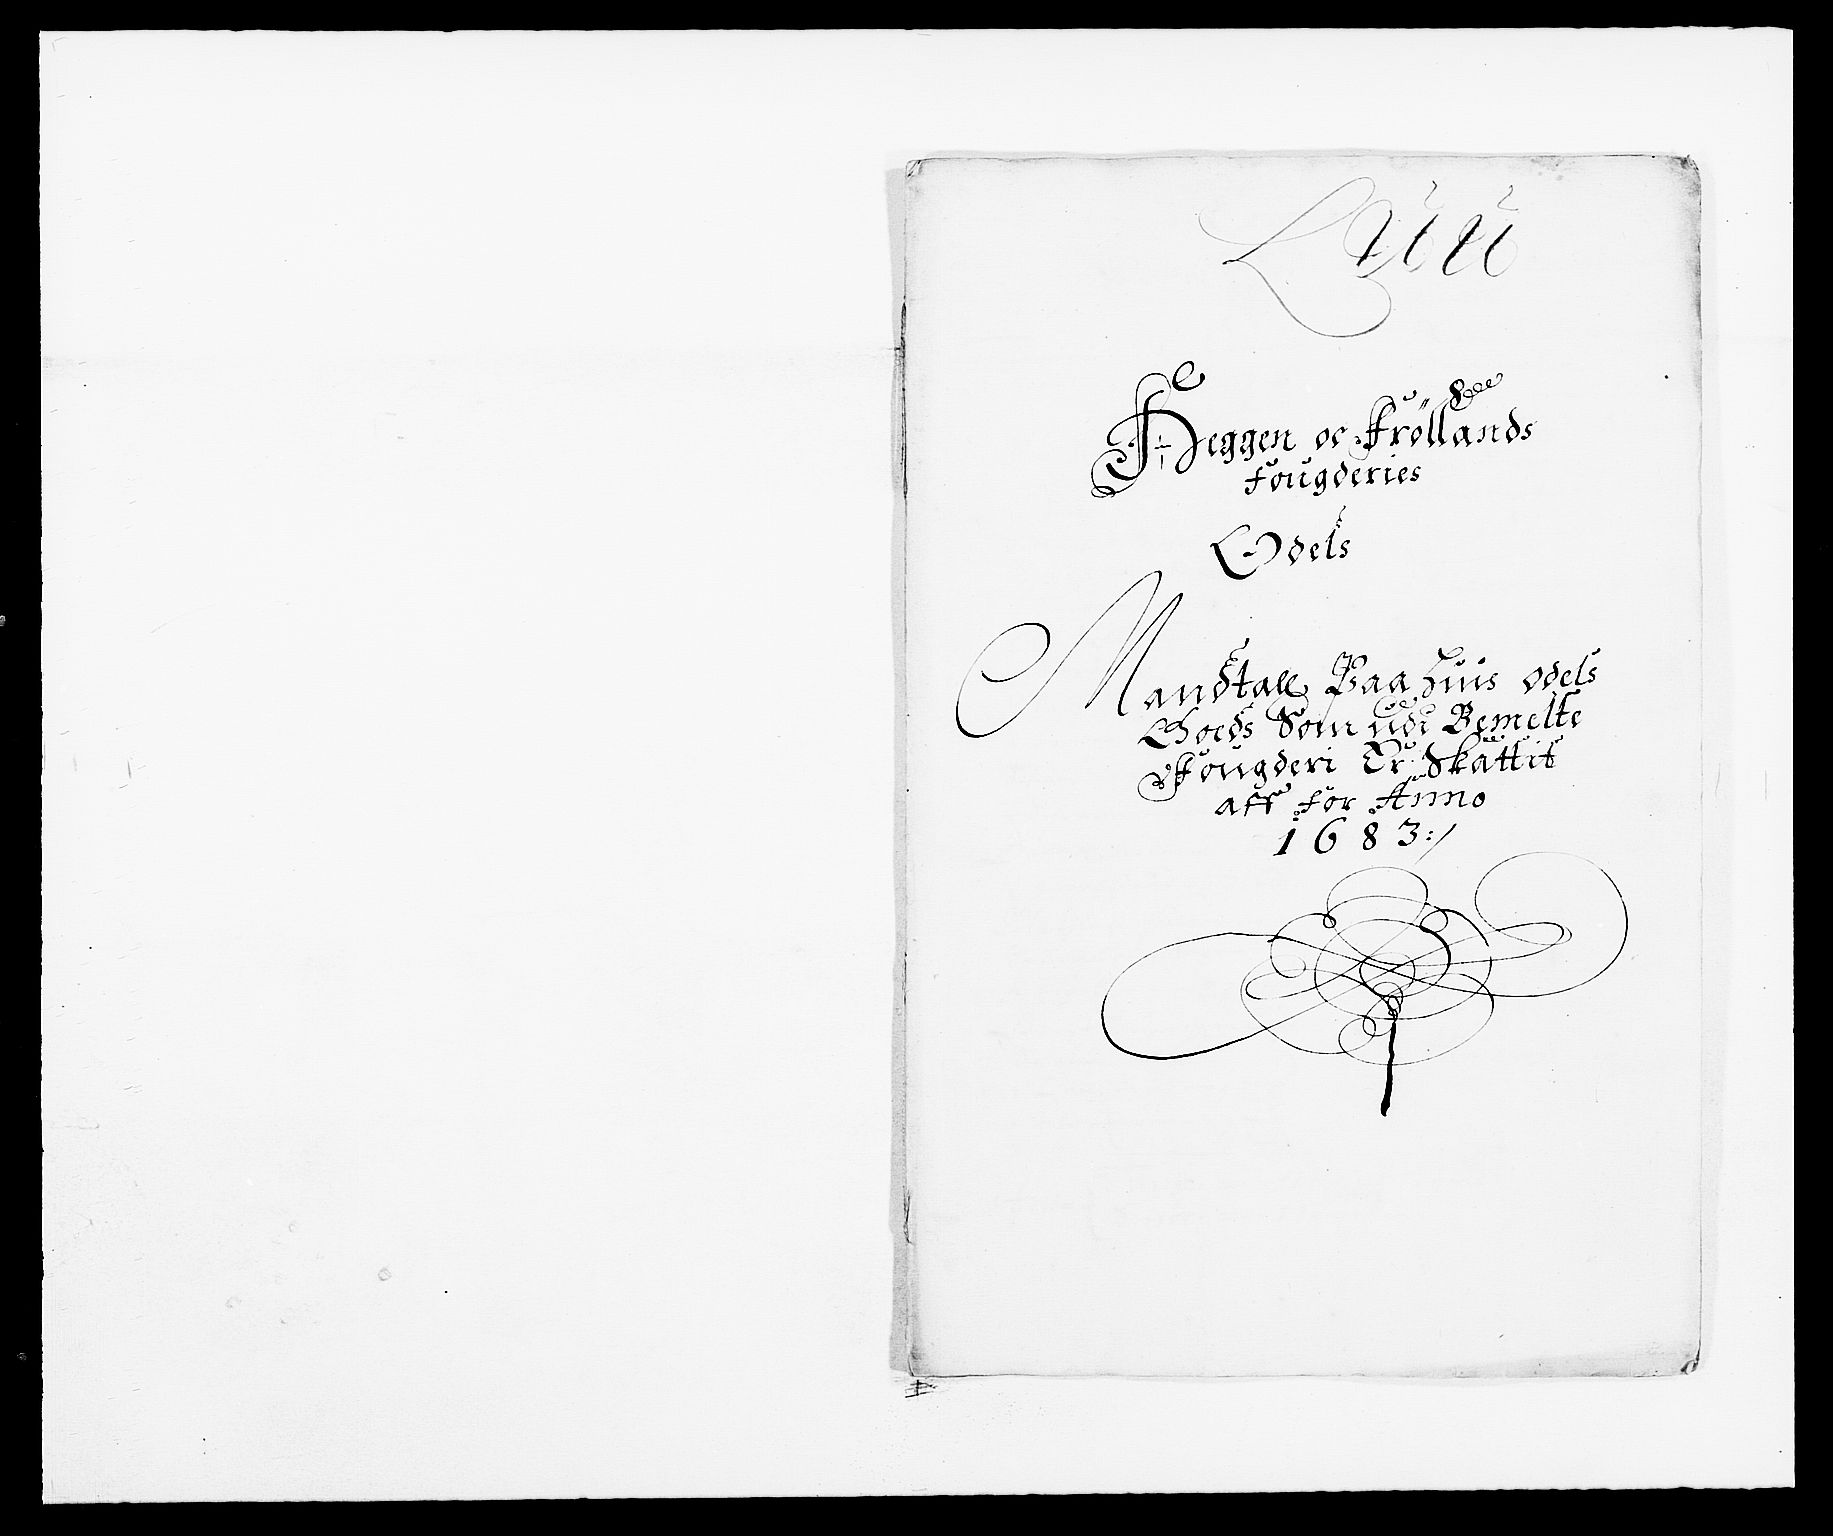 Heggen oc Fröllands
fougderies
Odels
Mandtall Paa huis odels
Goeds Som udi Bemelte
Fougderi Er Skattit
aff for Anno
1683:/